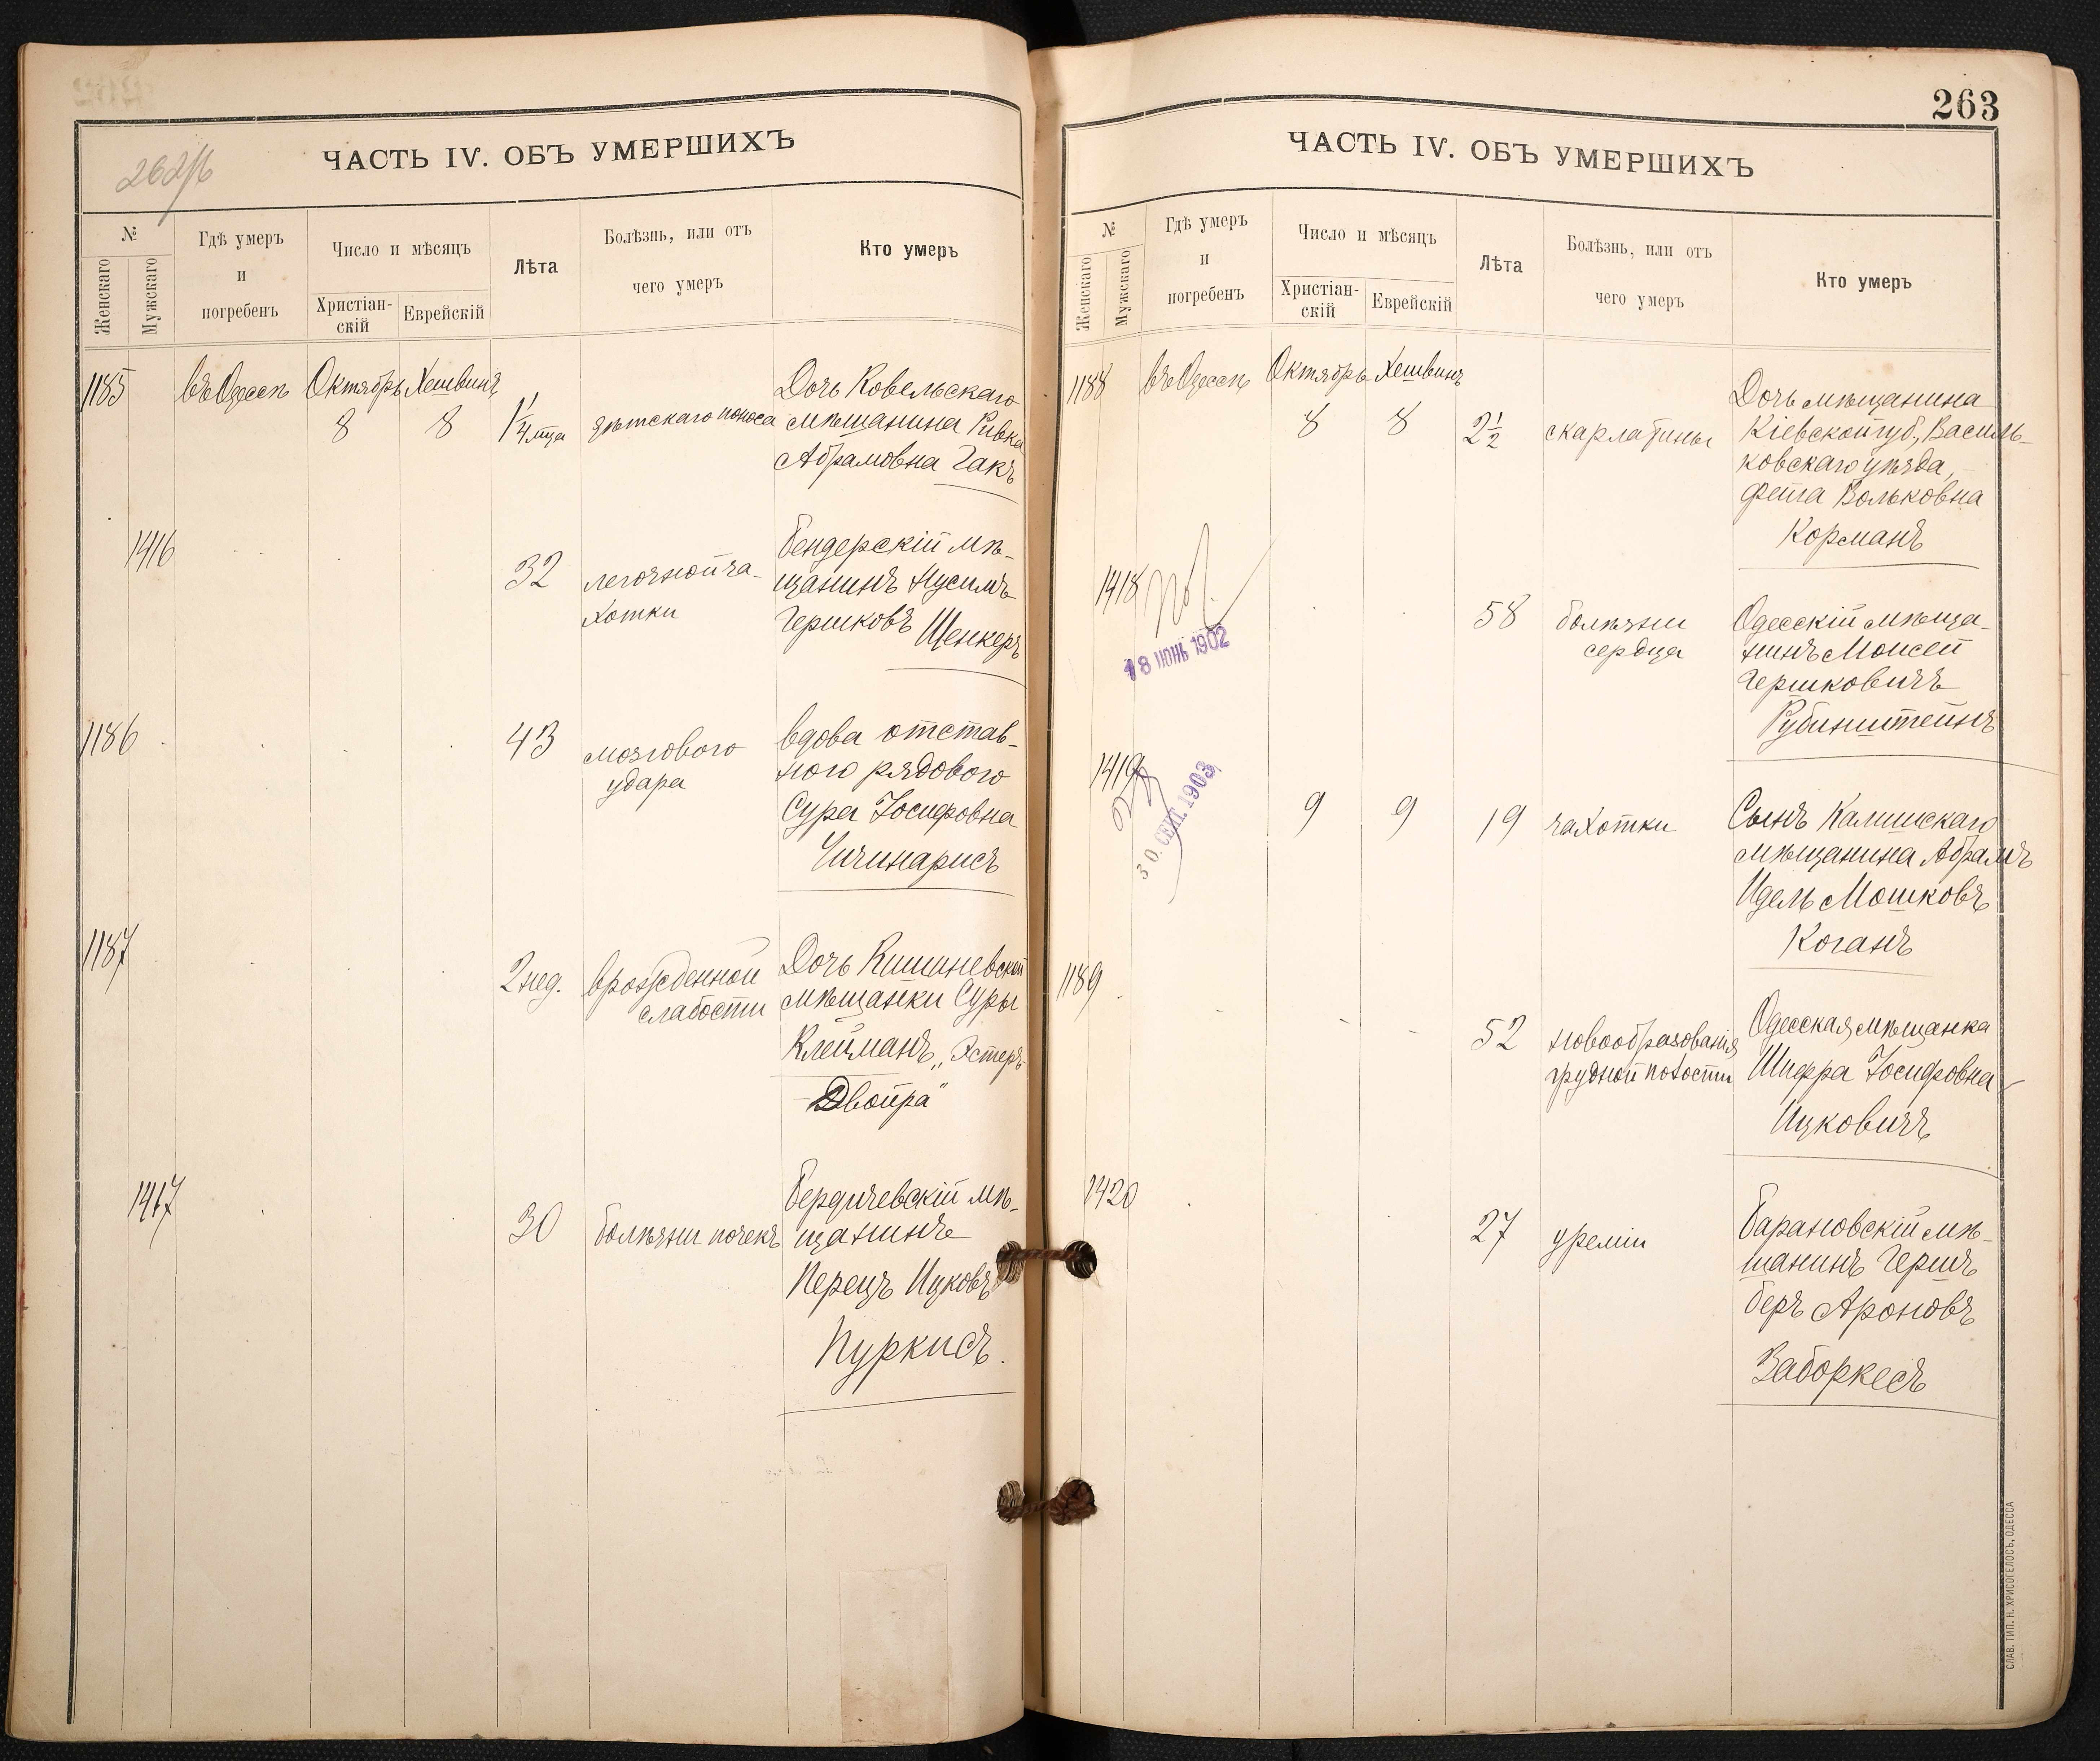 262/б
ЧАСТЬ IV. ОБЪ УМЕРШИХЪ
№
Женскаго
Мужскаго
Гдѣ умеръ
и
погребенъ
Число и мѣсяцъ
Христіан-
скій
Еврейскій
Лѣта
Болѣзнь, или отъ
чего умеръ
Кто умеръ
1185 въ Одессѣ Октябрь 8 Хешвинъ 8 1 1/4 мца дѣтскаго поноса
Дочь Ковельскаго
мѣщанина Ривка
Абрамовна Гакъ
1416 32 легочной ча-
хотки
Бендерскій мѣ-
щанинъ Нусимъ
Гершковъ Щенкеръ
1186 43 мозгового
удара
вдова отстав-
ного рядового
Сура Іосифовна
Чичинарисъ
1187 2 нед. врожденной
слабости
Дочь Кишиневской
мѣщанки Суры
Клейманъ, „Эстеръ-
Двойра"
1417 30 болѣзни почекъ
Бердичевскій мѣ-
щанинъ
Перецъ Ицковъ
Пуркисъ.
263
ЧАСТЬ IV. ОБЪ УМЕРШИХЪ
№
Женскаго
Мужскаго
Гдѣ умеръ
и
погребенъ
Число и мѣсяцъ
Христіан-
скій
Еврейскій
Лѣта
Болѣзнь, или отъ
чего умеръ
Кто умеръ
1188 въ Одессѣ Октябрь 8 Хешвинъ 8 2 1/2 скарлатины
Дочь мѣщанина
Кіевской губ., Василь-
ковскаго уѣзда,
Фейга Вольковна
Корманъ
1418 58 болѣзни
сердца
18 ИЮНЬ 1902
Одесскій мѣща-
нинъ Моисей
Гершковичъ
Рубинштейнъ
1419 9 9 19 чахотки
30. СЕНТ. 1903
Сынъ Калишскаго
мѣщанина Абрамъ
Идель Мошковъ
Коганъ
1189 52 новообразованія
грудной полости
Одесская мѣщанка
Шифра Іосифовна
Ицковичъ
1420 27 уреміи
Барановскій мѣ-
щанинъ Гершъ
Беръ Ароновъ
Заборкесъ
СЛАВ. ТИП. Н. ХРИСОГЕЛОСЪ, ОДЕССА